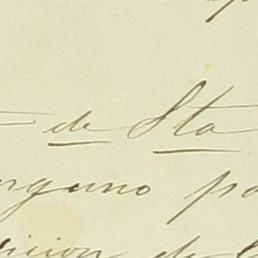 de Sta
nguno po
icion de